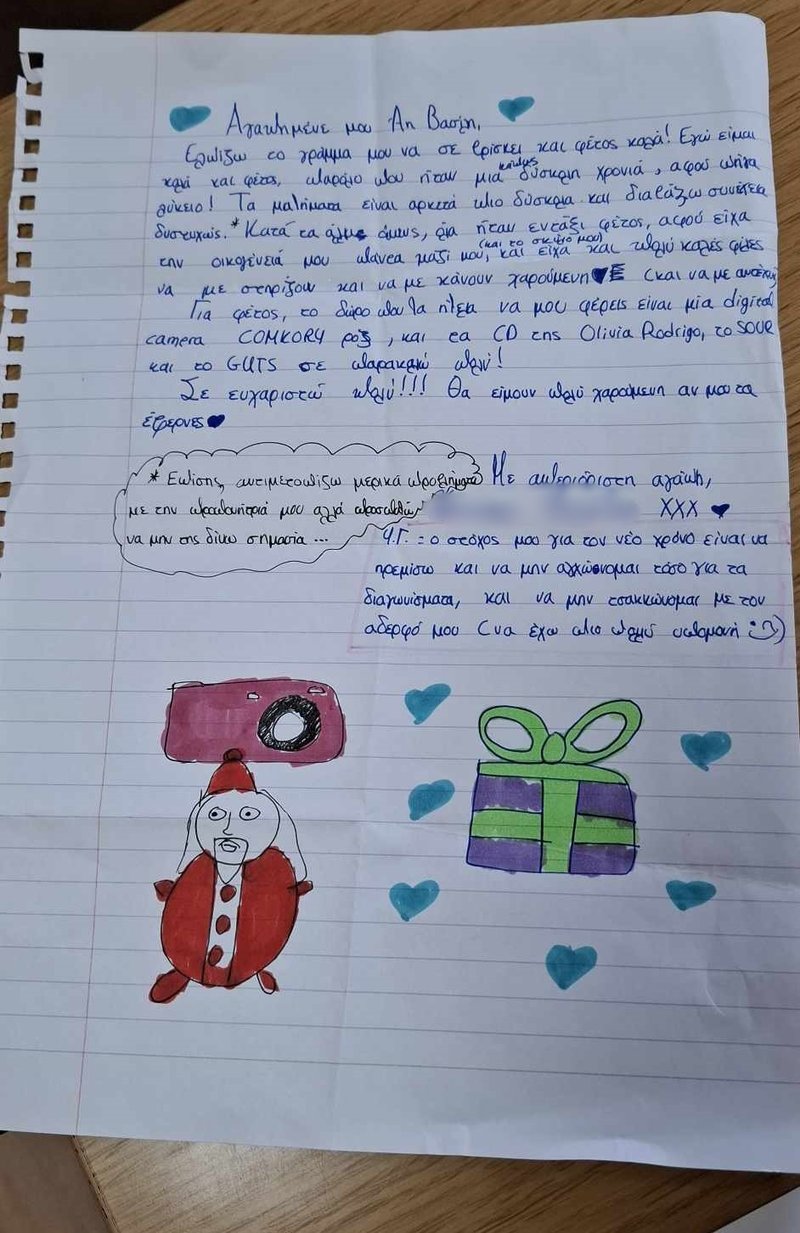 Αγαπημένε μου Άη Βασίλη,
Ελπίζω το γράμμα μου να σε βρίσκει και φέτος καλά! Εγώ είμαι
καλά και φέτος, παρόλο που ήταν μια κάπως δύσκολη χρονιά, αφού πήγα
λύκειο! Τα μαθήματα είναι αρκετά πιο δύσκολα και διαβάζω συνέχεια
δυστυχώς. * Κατά τα άλλα όμως, όλα ήταν εντάξει φέτος, αφού είχα
την οικογένειά μου πάντα μαζί μου, (και το σκύλο μου) και είχα και πολύ καλές φίλες
να με στηρίξουν και να με κάνουν χαρούμενη (και να με αντέχουν
Για φέτος, το δώρο που θα ήθελα να μου φέρεις είναι μια digital
camera COMKORY ροζ, και τα CD της Olivia Rodrigo, το SOUR
και το GUTS σε παρακαλώ πολύ!
Σε ευχαριστώ πολύ!!! Θα είμουν πολύ χαρούμενη αν μου τα
έφερνες
* Επίσης, αντιμετωπίζω μερικά προβλήματα
με την προπονήτριά μου αλλά προσπαθώ
να μην της δίνω σημασία ...
Με απεριόριστη αγάπη,
XXX
Υ.Γ. : ο στόχος μου για τον νέο χρόνο είναι να
ηρεμίσω και να μην αγχώνομαι τόσο για τα
διαγωνίσματα, και να μην τσακώνομαι με τον
αδερφό μου (να έχω πιο πολύ υπομονή :))